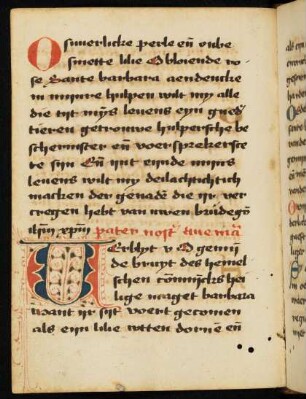 O suuerlicke perle en̄ onbe
smette lilie O bloiende ro
se Sante barbara aendencke
in mijnre hulpen wilt my alle
die tijt mijns leuens eyn gues
tieren getrouwe hulpersche be
schermster en̄ voersprekerste
te sijn En̄ int eynde mijns
leuens wilt my deilachtichtich
macken der genadē die ir ver
cregen hebt van uwen brudegō
pater nost̄ Aue ma
Erblyt v O gemij
de bruyt des hemel
schen hei
lige maget barbara
want ir sijt voert gecomen
als eyn lilie wtten dornē en̄